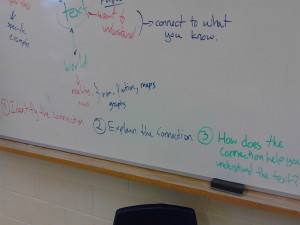 text
want to
understand
connect to what
you know.
specific
examples
world
maps
graphs
① Identify the connection
② Explain the connection
③ How does the
connection help you
understand the text?